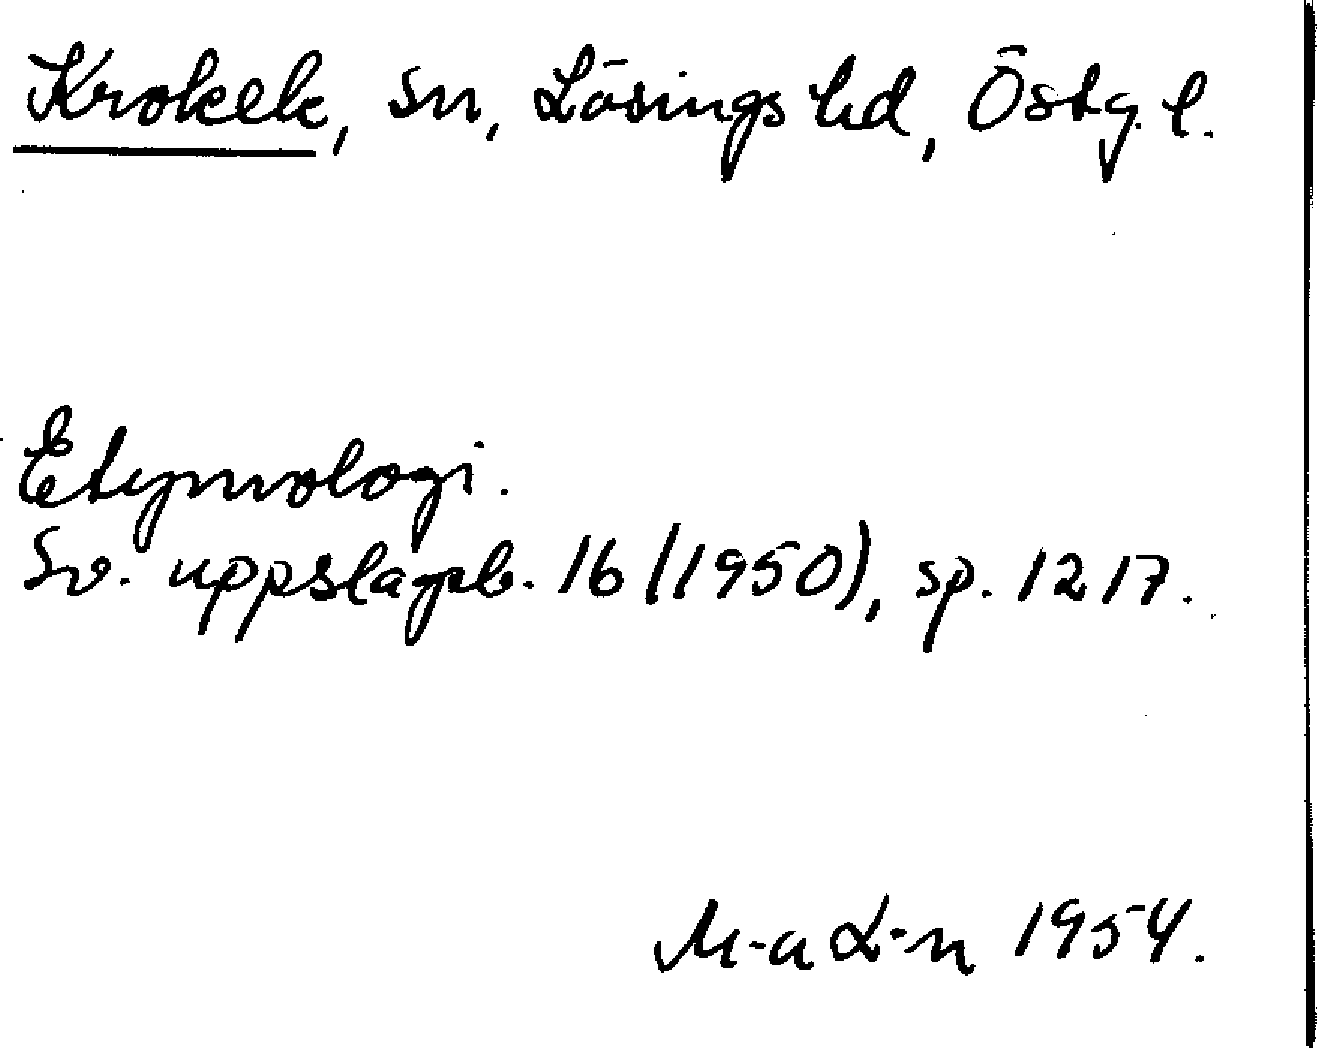 Krokek, sn, Lösings hd, Östg. l.
Etymologi.
Sv. uppslagsb. 16 (1950), sp. 1217.
M-a L-n 1954.